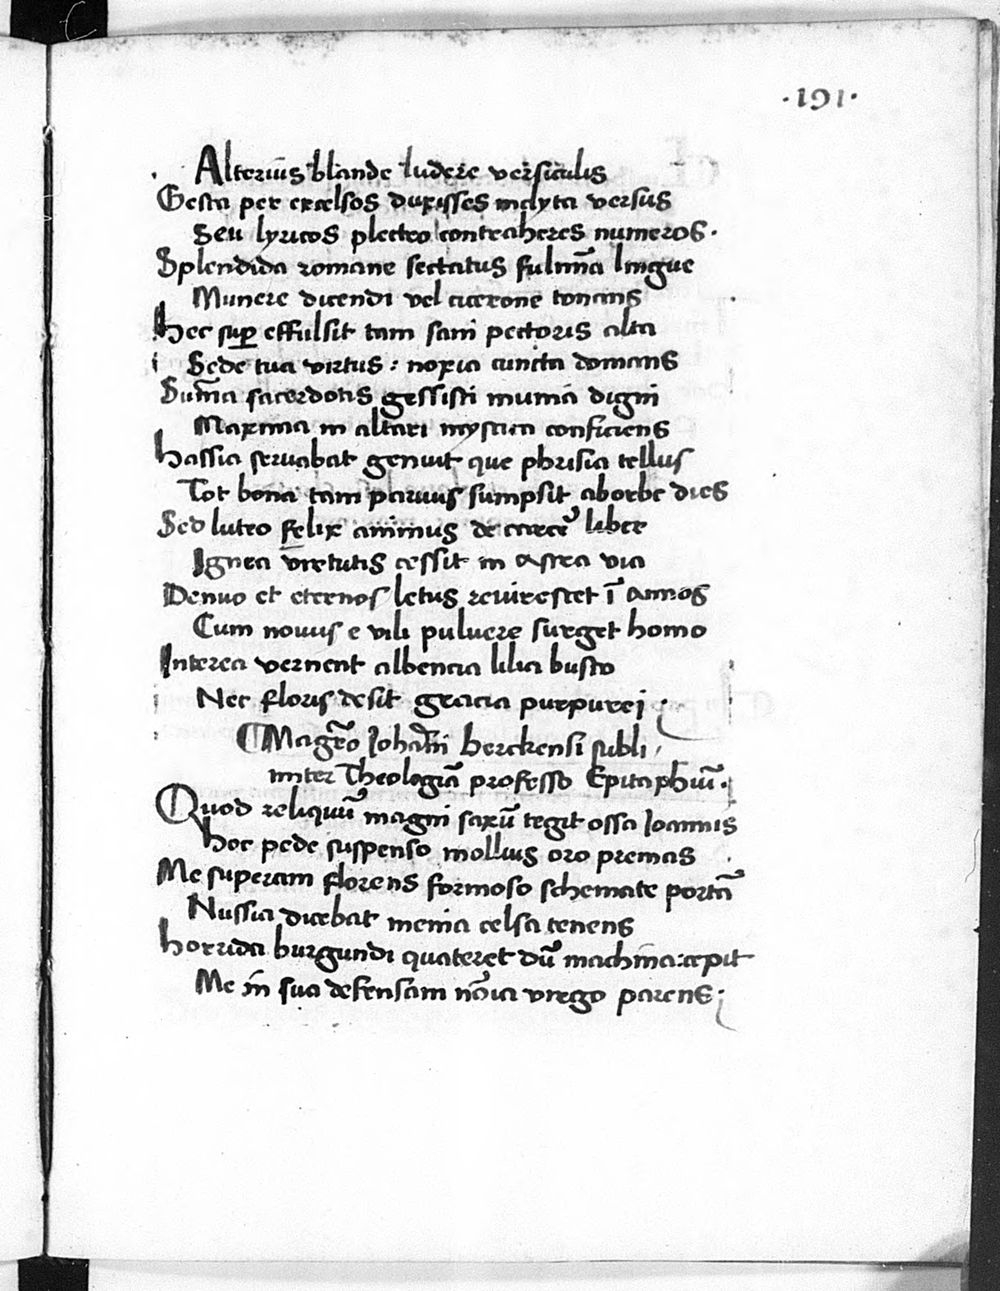 ·191·
Alterius blande ludere versiculis
Gesta per excelsos duxisses inclyta versus
Seu lyricos plectro contraheres numeros.
Splendida romane sectatus fulmīa lingue
Munere dicendi vel cicerone tonans
hec suꝑ effulsit tam sani pectoris alta
Sede tua virtus : noxia cuncta domans
Sum̄a sacerdotis gessisti munia digni
Maxima in altari mystica conficiens
hassia servabat genuit que phrisia tellus
Tot bona tam parvus sumpsit ab orbe dies
Sed luteo felix animus de carcer̄ liber
Ignea virtutis cessit in astra via
Denuo et eternos letus revirescet ī annos
Cum novus e vili pulvere surget homo
Interea vernent albencia lilia busto
Nec floris desit gracia purpurei ;
Magr̄o Joha͞ni Berckensi subli /
miter Theologiā professo Epitaphiū.
Quod reliquū magni saxū tegit ossa Joannis
hoc pede suspenso mollius oro premas
Me superam florens formoso schemate portā
Nussia ducebat menia celsa tenens
horrida burgundi quateret dū machina: cepit
Me in sua defensam virgo parens ;